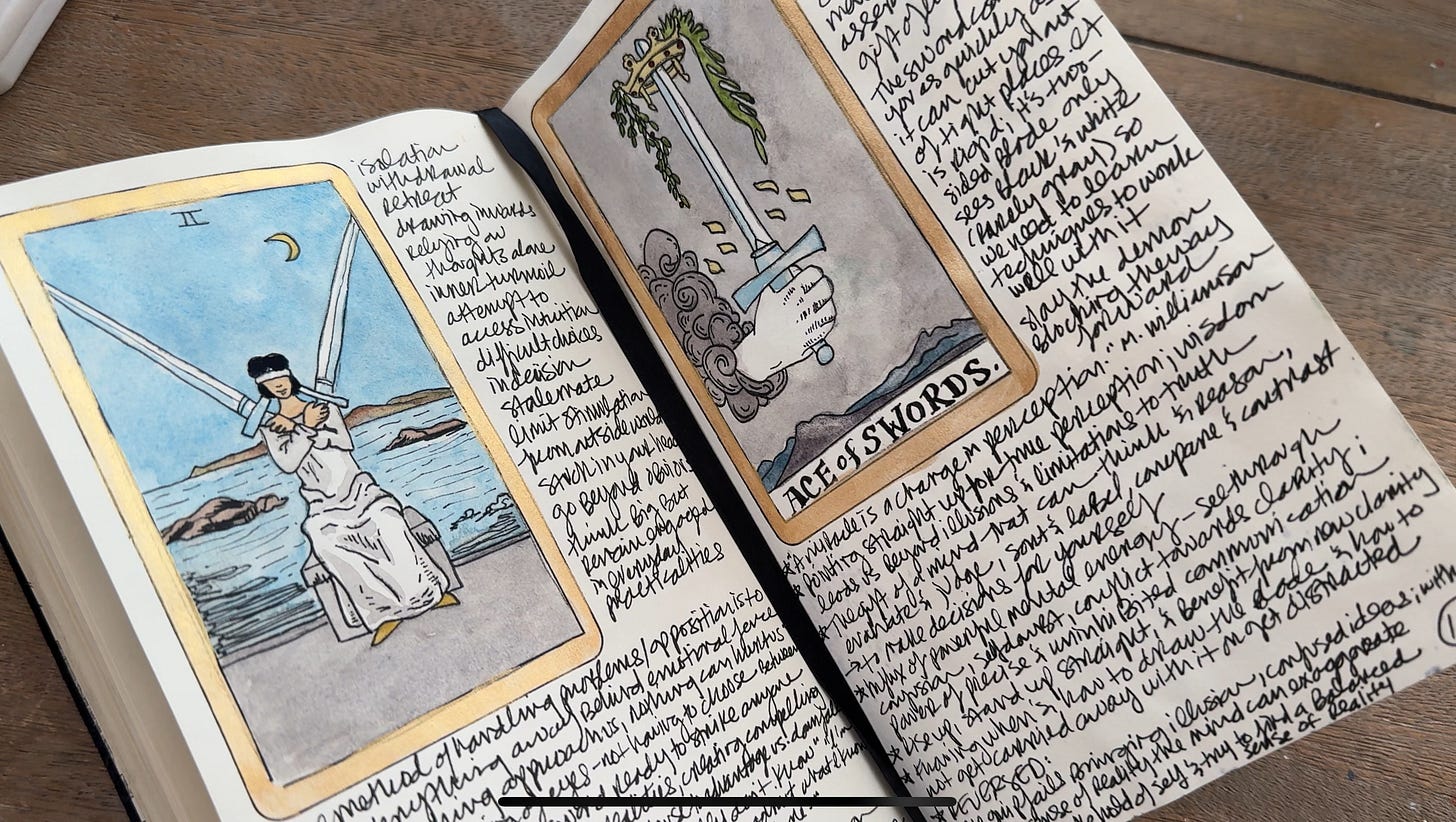 II
isolation
withdrawal
retreat
drawing inwards
relying on
thoughts alone
inner turmoil
attempt to
access intuition
difficult choices
indecision
stalemate
limit stimulation
from outside world
stuck in your head
go beyond obvious
think big but
remain engaged
in everyday
practicalities
method of handling problems/opposition is to
anything away behind emotional force
approaches, nothing can hurt us
eyes - not having to choose between
ready to strike anyone
creating compelling
advantage vs
don't know"
ACE of SWORDS.
gift of
The sword
you as quickly as
it can cut you out
of tight places. It
is rigid; it's two-
sided blade only
sees black & white
(rarely gray) so
we need to learn
techniques to work
well with it
slay the demon
blocking the way
forward
"A miracle is a change in perception." M. Williamson
* Pointing straight up for true perception; wisdom
leads us beyond illusions & limitations to truth
* The gift of a mind that can think & reason,
evaluate & judge, sort & label, compare & contrast
→ to make decisions for yourself
* Influx of powerful mental energy - see through
confusion, self doubt, conflict towards clarity;
power of precise & uninhibited communication
* Use it, stand up straight, & benefit from new clarity
* Knowing when & how to draw the blade & how to
not get carried away with it or get distracted
* REVERSED:
fails bringing illusion, confused ideas;
sense of reality the mind can exaggerate
hold of say & try to find a balanced
sense of reality